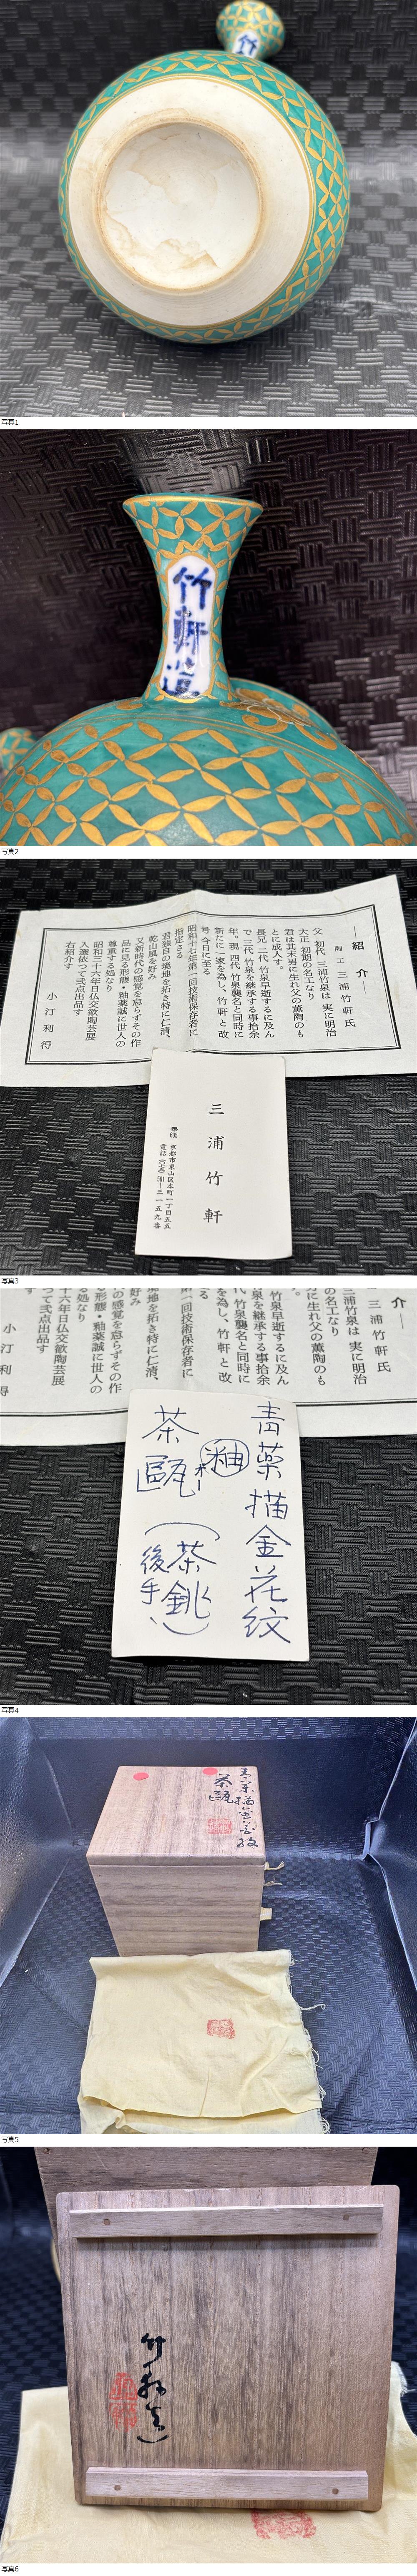 竹
写真1
竹軒造
写真2
―紹介―
陶工 三浦竹軒氏
父 初代 三浦竹泉は 実に明治
大正 初期の名工なり
君は其末男に生れ父の薫陶のも
とに成人す。
長兄 二代 竹泉早逝するに及ん
で 三代 竹泉を継承する事拾余
年。現 四代 竹泉襲名と同時に
新たに 一家を為し、竹軒 と 改
号 今日に至る
昭和十七年第一回技術保存者に
指定さる
君独自の境地を拓き特に仁清、
乾山風を好み
又新時代の感覚を怠らずその作
品に見る形態・釉薬誠に世人の
尊重する処なり
昭和三十六年日仏交歓陶芸展
入選依つて弐点出品す
右紹介す
小汀利得
三浦竹軒
京都市東山区本町一丁目五五
写真3
介―
三浦竹軒氏
三浦竹泉は 実に明治
の名工なり
に生れ父の薫陶のも
竹泉早逝するに及ん
泉を継承する事拾余
代 竹泉襲名と同時に
を為し、竹軒 と 改
る
一回技術保存者に
地を拓き特に仁清、
好み
の感覚を怠らずその作
形態・釉薬誠に世人の
処なり
十六年日仏交歓陶芸展
つて弐点出品す
す
小汀利得
青薬描金花紋
釉
茶甌
(茶銚)
後手
写真4
青薬描金花紋
茶甌
写真5
竹軒造
写真6